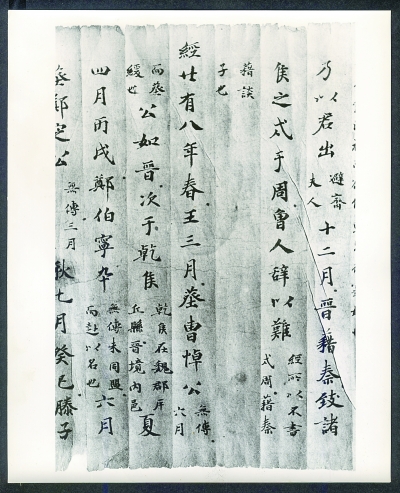 乃以君出避齊夫人十二月晉藉秦致諸
侯之戍于周魯人辭以難經所以不書戍周藉秦
藉談子也
經廿有八年春王三月葬曹悼公無傳六月
而葬緩也公如晉次于乾侯乾侯在魏郡斥丘縣晉境內邑夏
四月丙戌鄭伯寧卒無傳未同盟而赴以名也六月
葬鄭定公無傳三月秋七月癸巳滕子